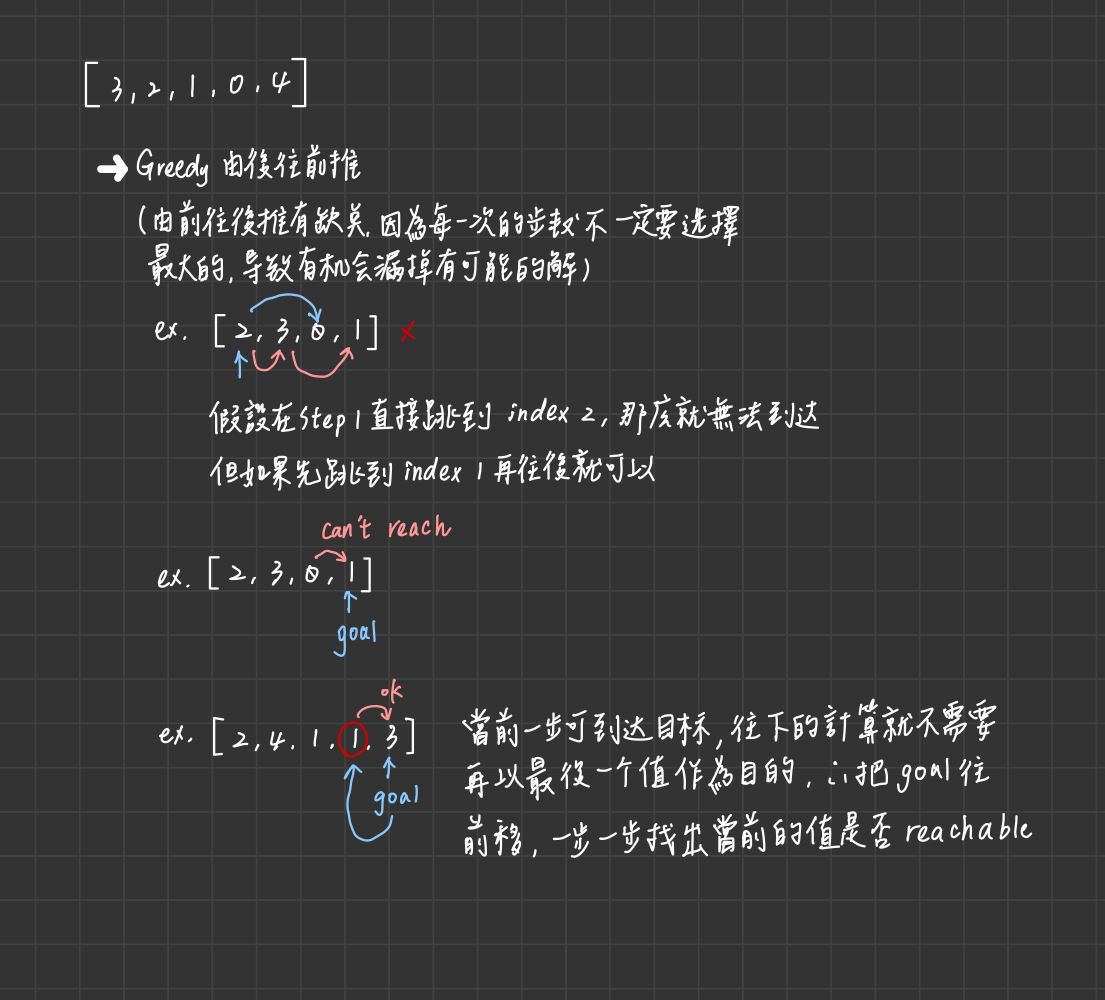 [3, 2, 1, 0, 4]
→ Greedy 由後往前推
(由前往後推有缺失, 因為每一次的步數不一定要选擇
最大的, 导致有机会漏掉有可能的解)
ex. [2, 3, 0, 1] ×
假設在step 1 直接跳到 index 2, 那底就無法到达
但如果先跳到 index 1 再往後就可以
can't reach
ex. [2, 3, 0, 1]
goal
ok
ex. [2, 4, 1, 1, 3]
goal
當前一步可到达目标, 往下的計算就不需要
再以最後一个值作為目的, ∴把 goal 往
前移, 一步一步找出當前的值是否 reachable